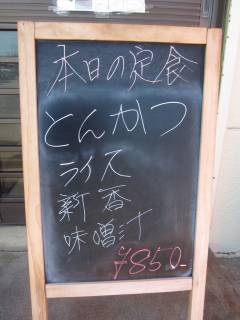 本日の定食
とんかつ
ライス
新香
味噌汁
¥850-